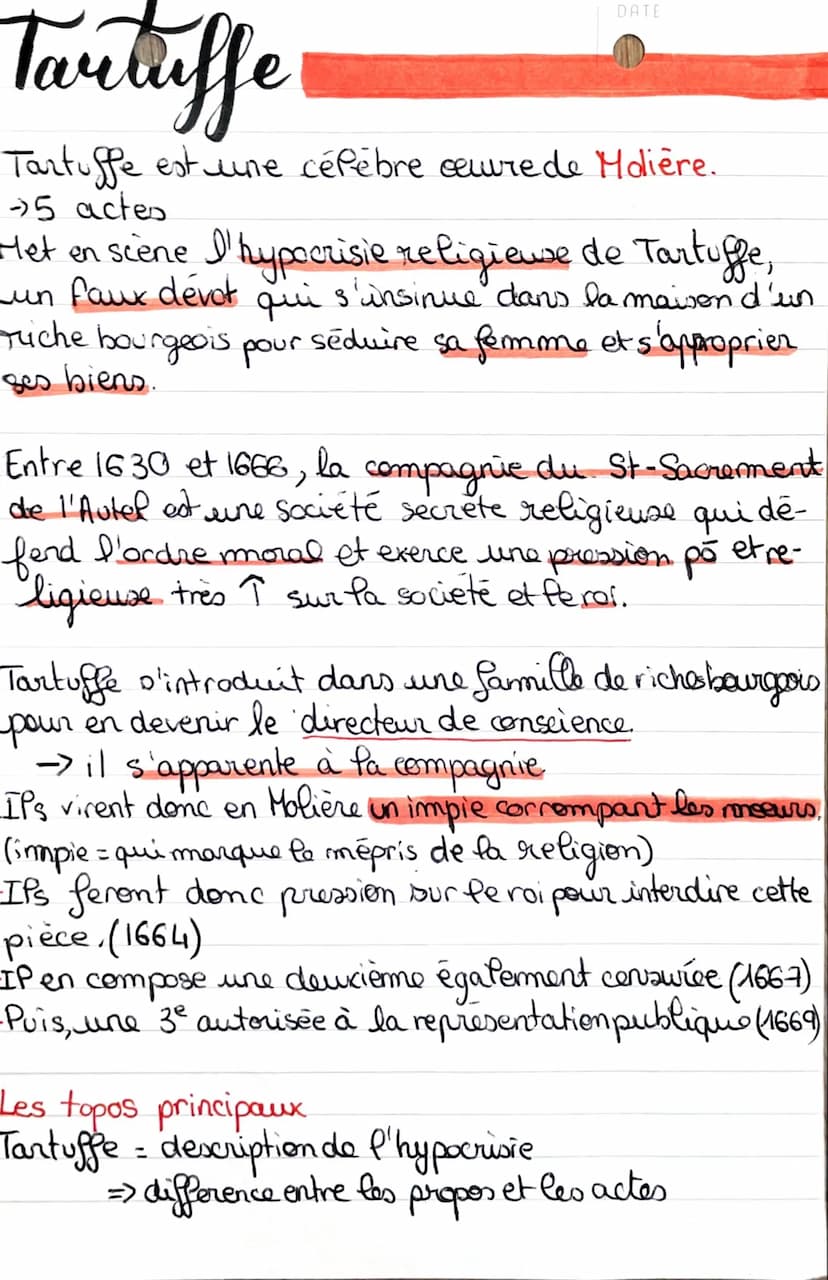 DATE
Tartuffe
Tartuffe est une célèbre œuvre de Molière.
→5 actes
Met en scène l'hypocrisie religieuse de Tartuffe,
un faux dévot qui s'insinue dans la maison d'un
riche bourgeois pour séduire sa femme et s'approprier
ses biens.
Entre 1630 et 1666, la compagnie du St-Sacrement
de l'Autel est une société secrète religieuse qui dé-
fend l'ordre moral et exerce une pression pō et re-
ligieuse très ↑ sur la société et le roi.
Tartuffe s'introduit dans une famille de riches bourgeois
pour en devenir le directeur de conscience.
→ il s'apparente à la compagnie.
Ils virent donc en Molière un impie corrompant les mœurs.
(impie = qui marque le mépris de la religion)
Ils feront donc pression sur le roi pour interdire cette
pièce. (1664)
Il en compose une deuxième également censurée (1667)
Puis, une 3e autorisée à la représentation publique (1669)
Les topos principaux
Tartuffe = description de l'hypocrisie
=> différence entre les propos et les actes